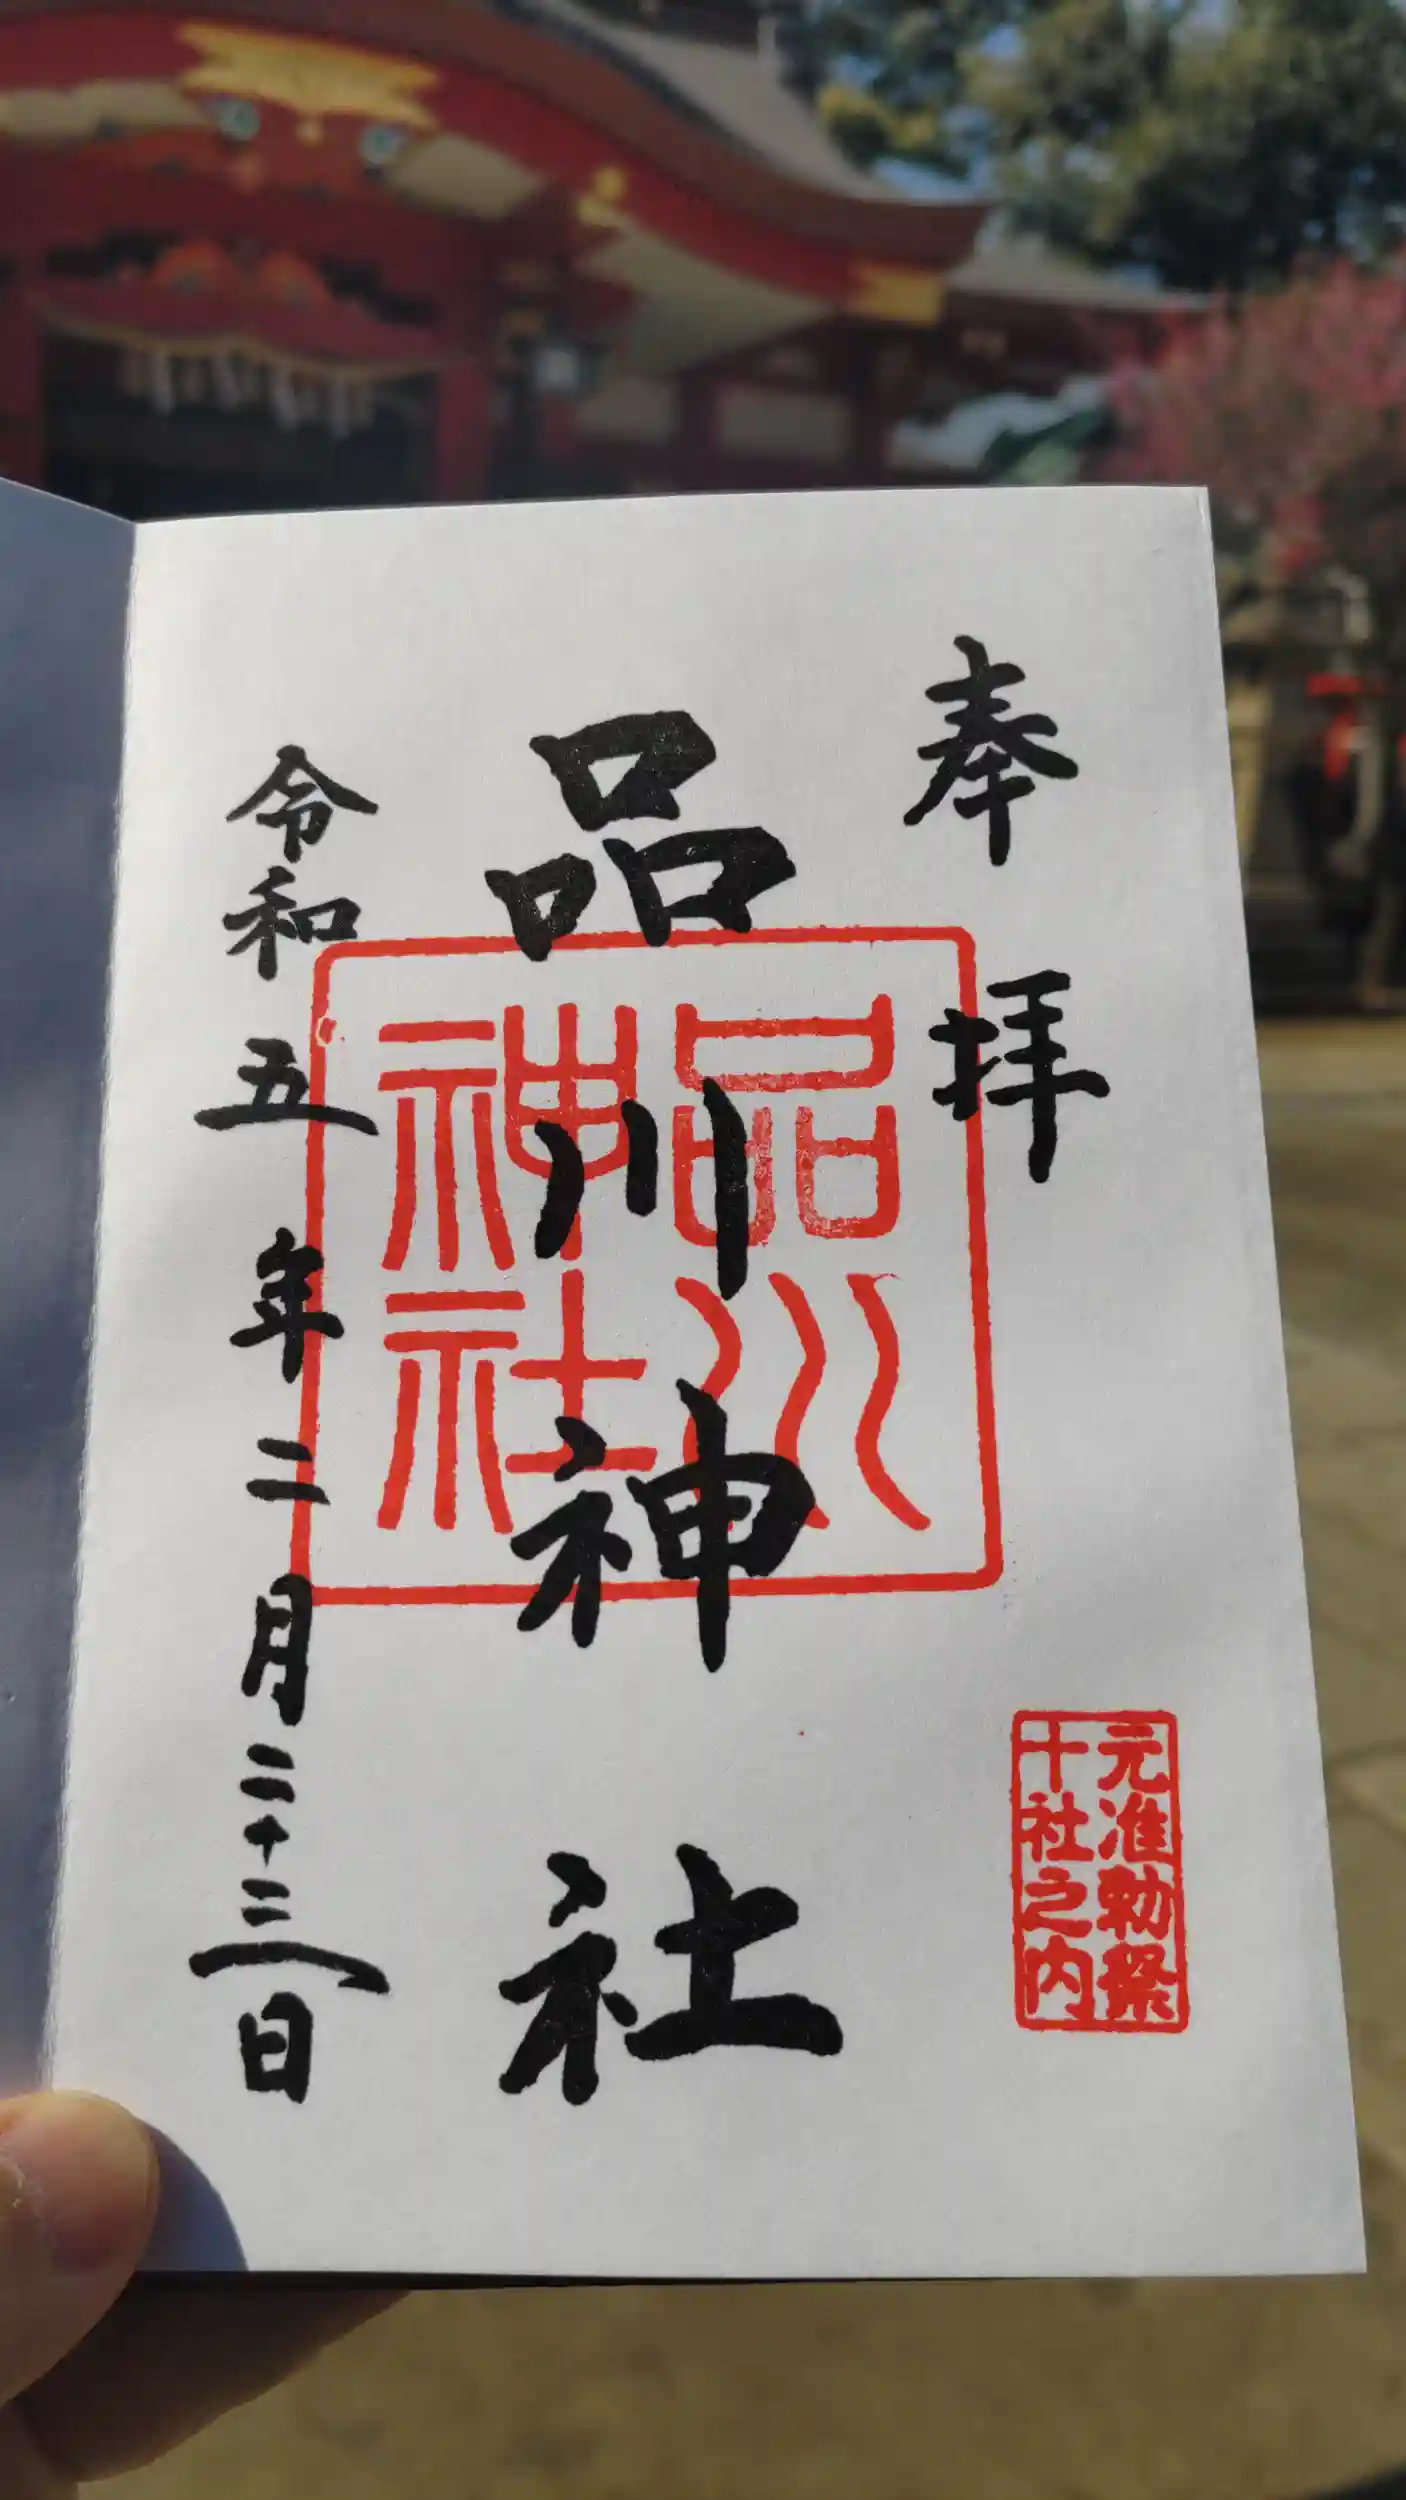 奉拝
元准勅祭
十社之内
品川神社
品川
神社
令和五年二月二十三日